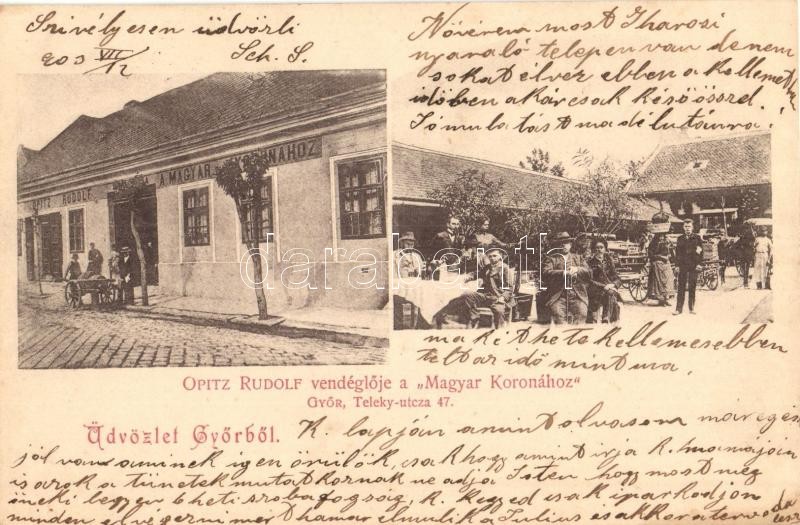 Szivélyesen üdvözli
903 VII/12 Sch. S.
Nővérem most Iharosi
nyaraló telepen van de nem
sokat élvez ebben a kellemetlen
időben akárcsak késő ősszel.
Jó mulatást ma délutánra.
OPITZ RUDOLF A MAGYAR KORONÁHOZ
darabanth.com
ma két hete kellemesebben
telt az idő mint ma.
OPITZ RUDOLF vendéglője a „Magyar Koronához"
GYŐR, Teleky-utcza 47.
Üdvözlet Győrből.
K. lapján amint olvasom már egész
jól van aminek igen örülök, csak hogy amint irja K. mamáján
is azok a tünetek mutatkoznak ne adja Isten hogy most még
neki legyen 6 heti szobafogság, K. Kegyed csak iparkodjon
minden elvégezni mert hamar elmulik a Julius és akkor a